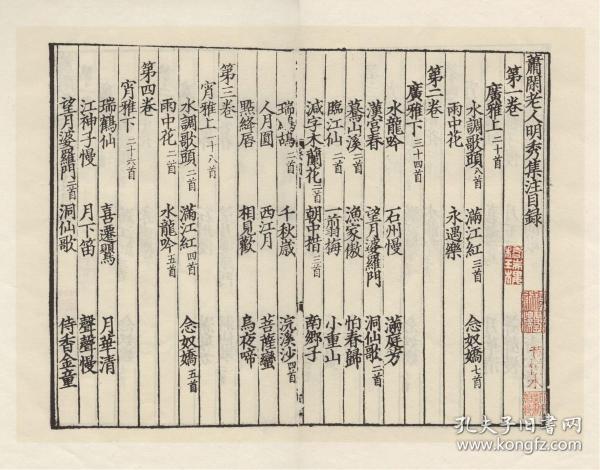 蕭閑老人明秀集注目録
第一卷
廣雅上 二十首
水調歌頭 八首 滿江紅 三首 念奴嬌 七首
雨中花 永遇樂
第二卷
廣雅下 三十四首
水龍吟 石州慢 滿庭芳
漢宮春 望月婆羅門 洞仙歌 二首
驀山溪 二首 漁家傲 怕春歸
臨江仙 二首 一翦梅 小重山
減字木蘭花 二首 朝中措 三首 南鄉子
瑞鷓鴣 二首 千秋歲 浣溪沙 四首
人月圓 西江月 菩薩蠻
點絳唇 相見歡 烏夜啼
第三卷
宵雅上 二十八首
水調歌頭 二首 滿江紅 四首 念奴嬌 五首
雨中花 二首 水龍吟 五首
第四卷
宵雅下 二十六首
瑞鶴仙 喜遷鶯 月華清
江神子慢 月下笛 聲聲慢
望月婆羅門 二首 洞仙歌 侍香金童
孔夫子旧书网
www.kongfz.com